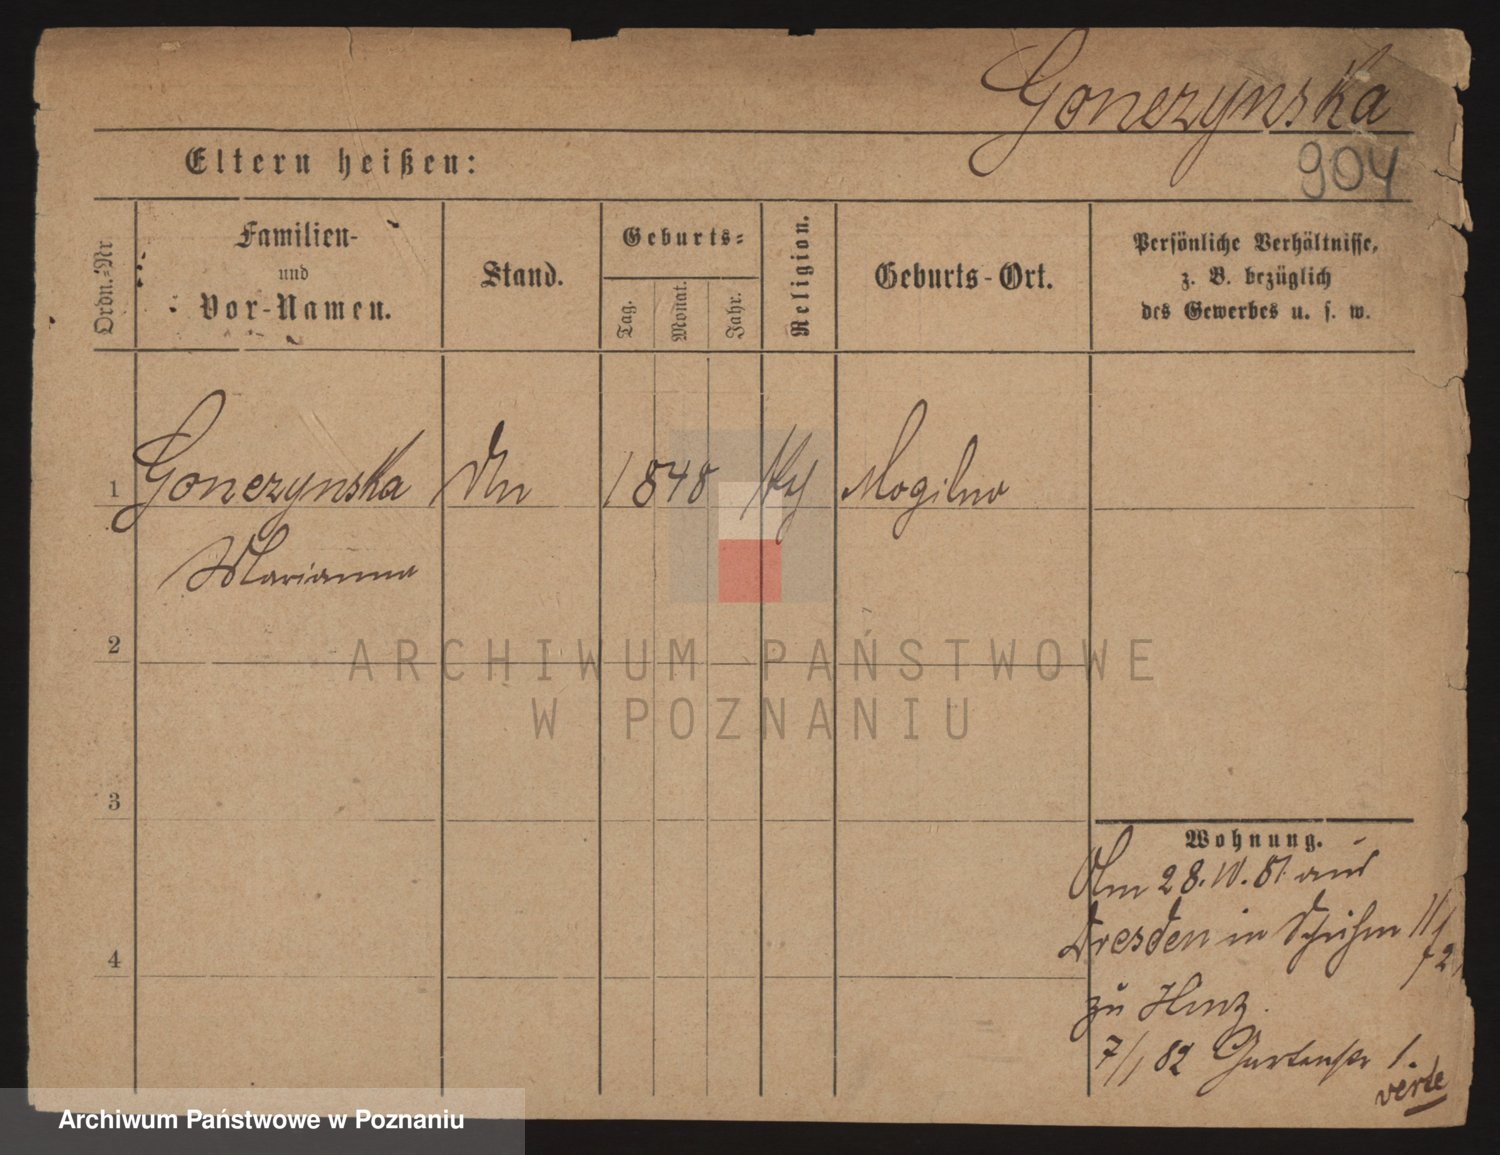 Gonczynska
904
Eltern heißen:
Ordn.-Nr
Familien-
und
Vor-Namen.
Stand.
Geburts-
Tag.
Monat.
Jahr.
Religion.
Geburts-Ort.
Persönliche Verhältnisse,
z. B. bezüglich
des Gewerbes u. s. w.
1 Gonczynska 1848 Mogilno
Marianna
2
3
4
ARCHIWUM PAŃSTWOWE
W POZNANIU
Wohnung.
28. 81 aus
Dresden in
zu
7/1 82 Gartenstr 1.
verte
Archiwum Państwowe w Poznaniu